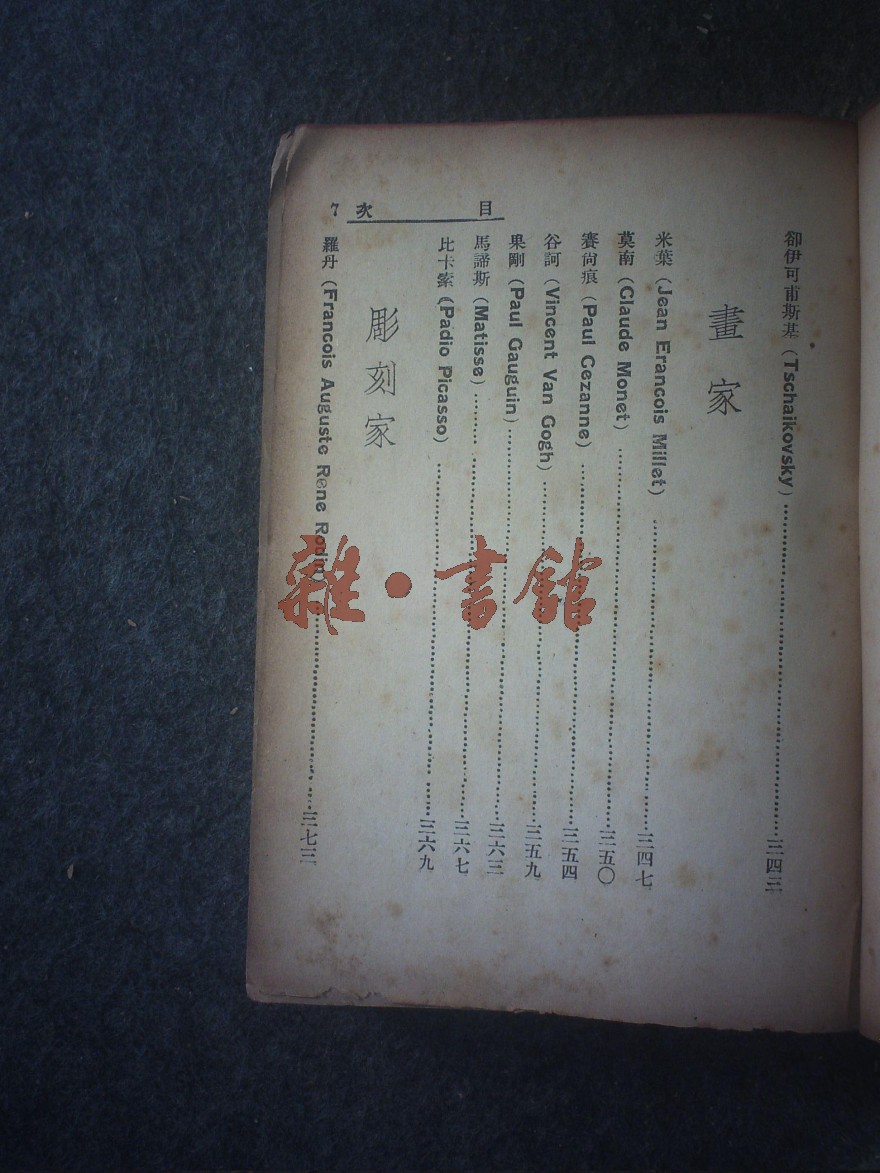 目次 7
卻伊可甫斯基 (Tschaikovsky) 三四三
畫家
米葉 (Jean Erancois Millet) 三四七
莫南 (Claude Monet) 三五〇
賽尙痕 (Paul Cezanne) 三五四
谷訶 (Vincent Van Gogh) 三五九
果剛 (Paul Gauguin) 三六三
馬諦斯 (Matisse) 三六七
比卡索 (Padio Picasso) 三六九
彫刻家
羅丹 (Francois Auguste Rene Rodin) 三七三
雜·書館